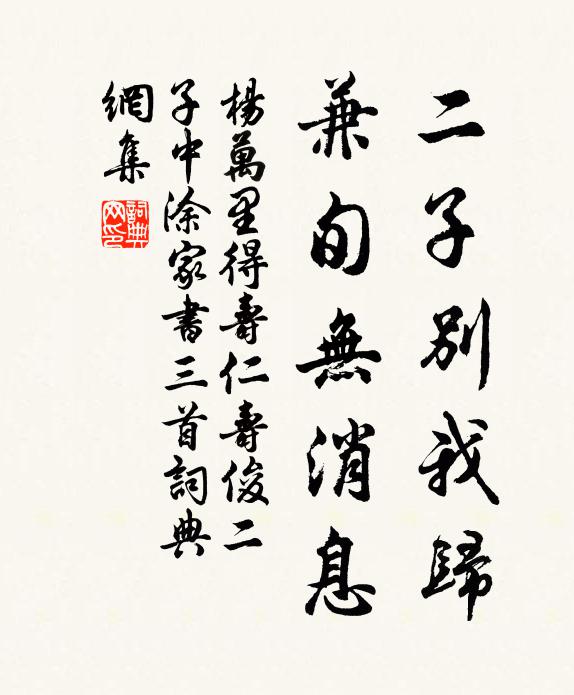 二子別我歸
兼旬無消息
楊萬里得壽仁壽俊二
子中涂家書三首詞典
網集
詞典網印